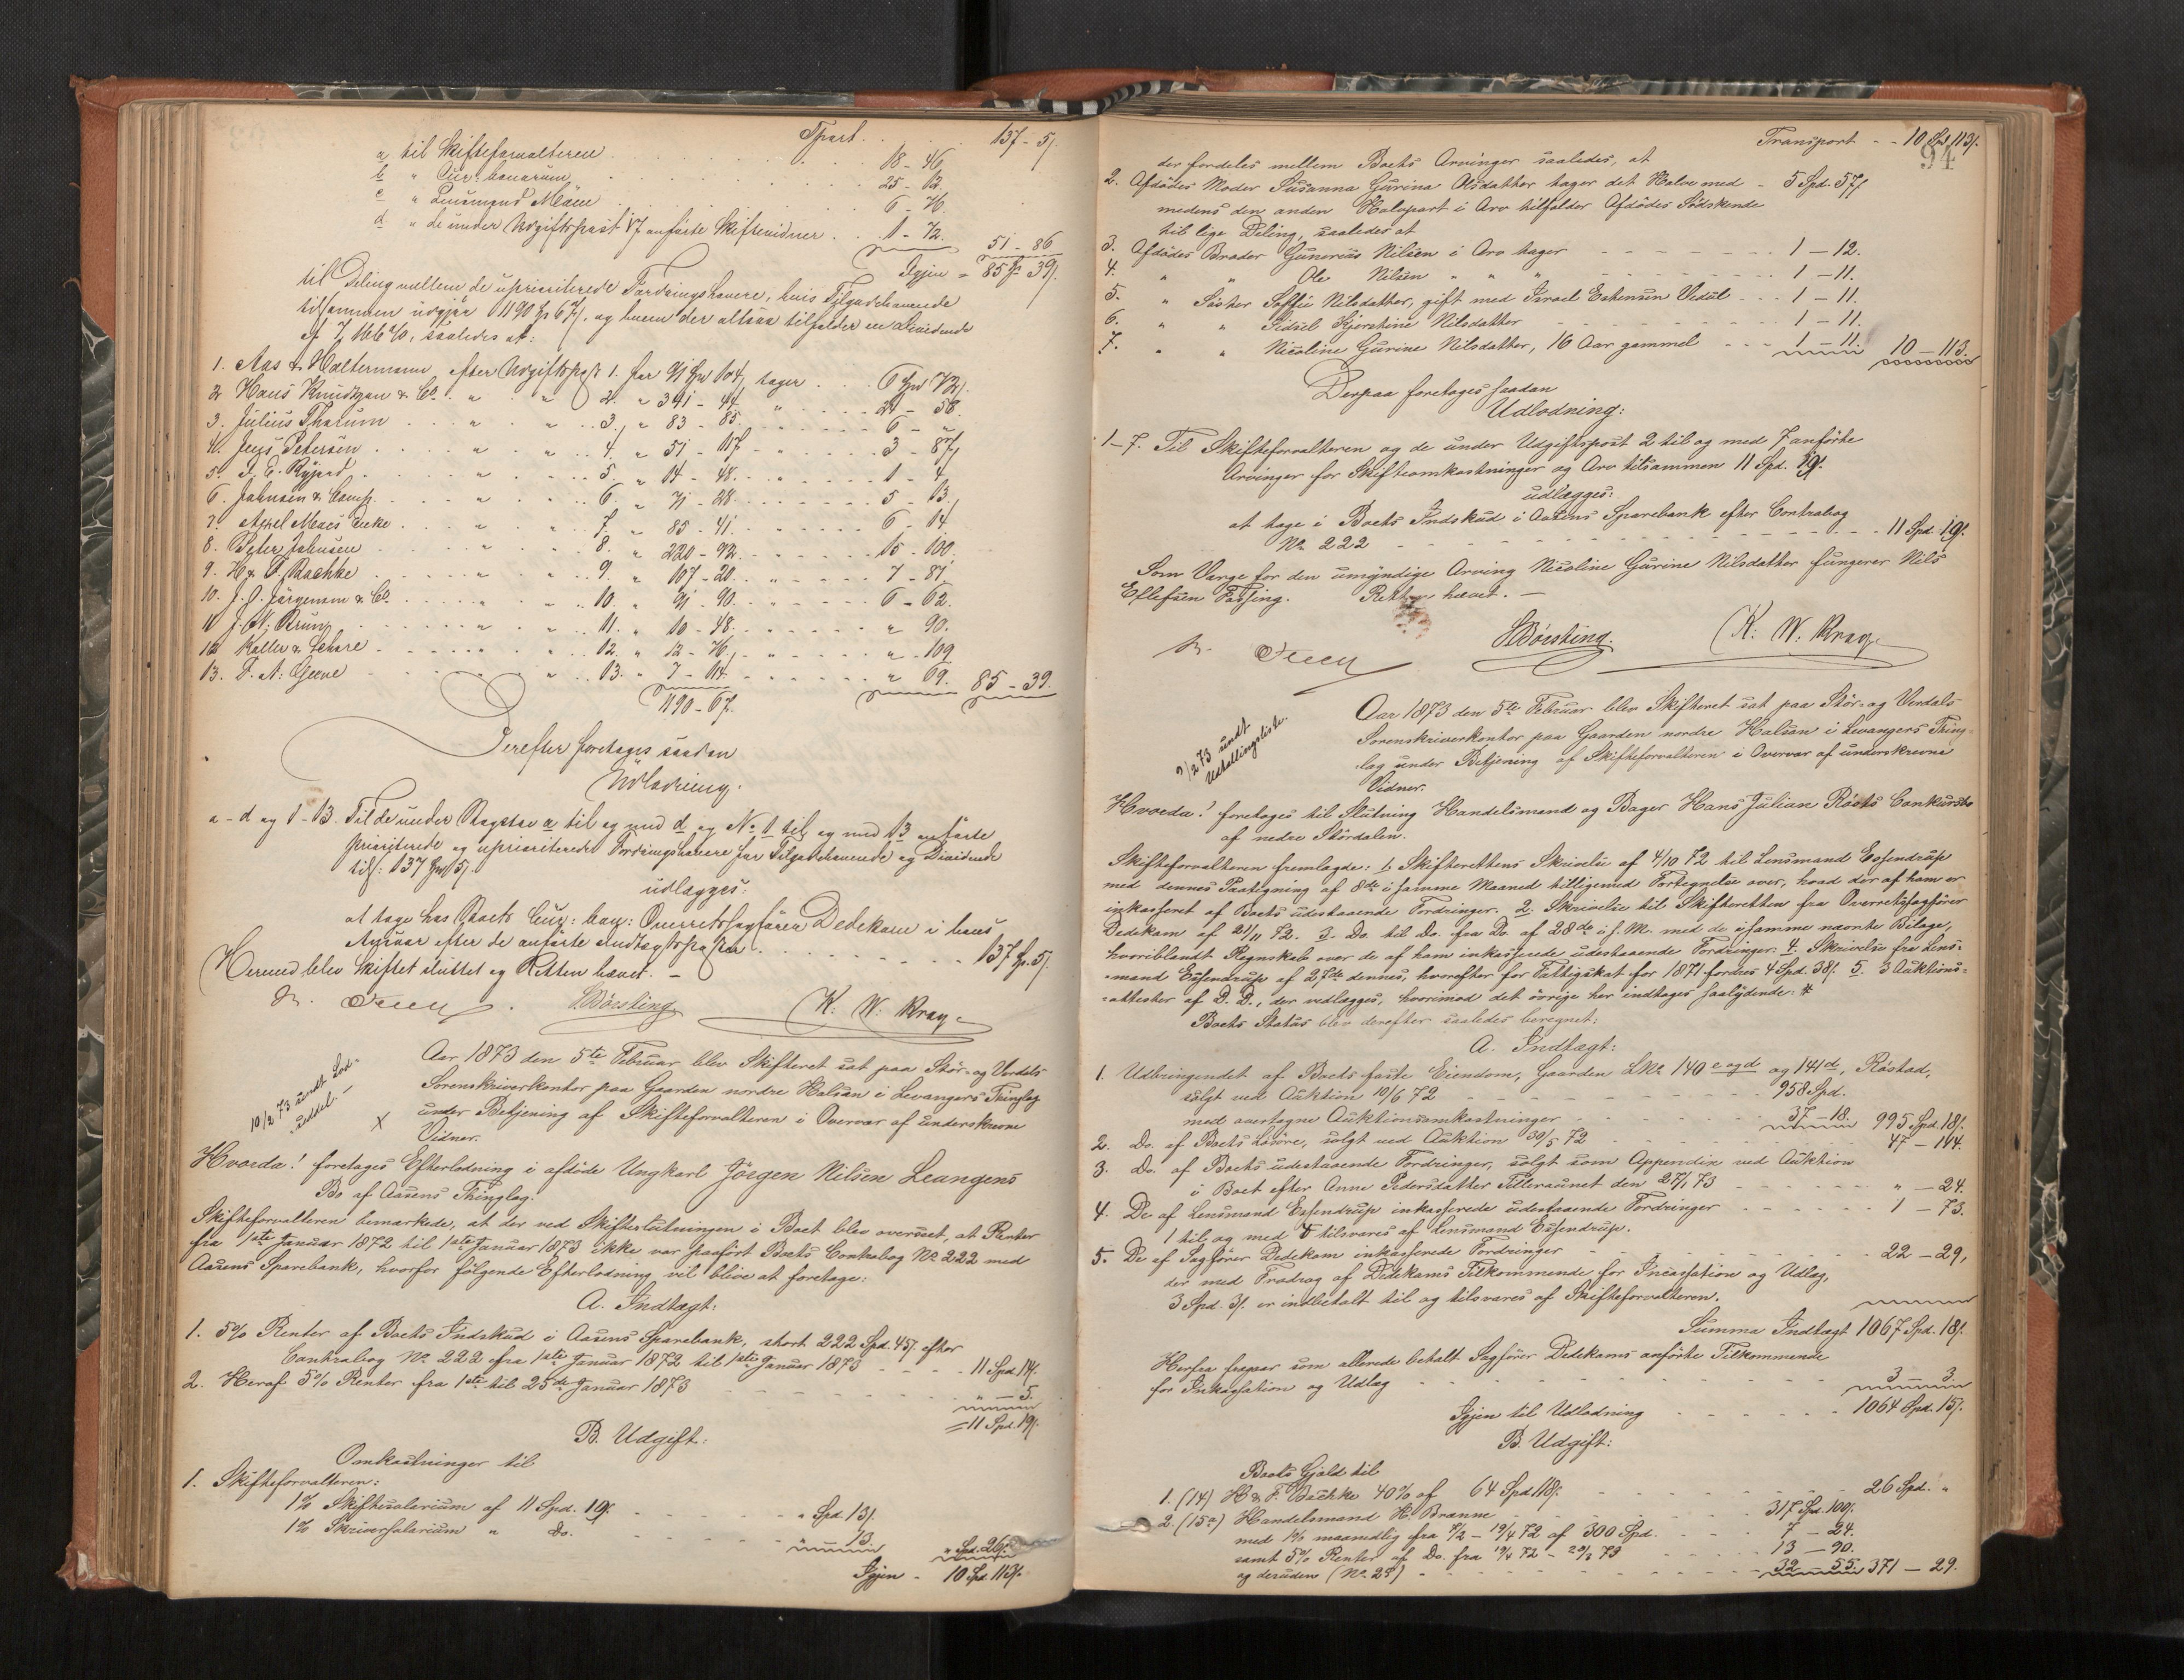 Tpart . . . 137 - 5/.
a til Skifteforvalteren . . . 18 - 46.
b " Cur: bonorum . . . 25 - 12.
c " Lensmand Mæhre . . . 6 - 76.
d " de under Udgiftspost 17 anførte Skiftevidner . . 1 - 72. 51 - 86
Igjen = 85 Sp 39/.
til Deling mellem de uprioriterede Fordringshavere, hvis Tilgodehavende
tilsammen udgjør 1190 Sp 67/. og hvem der altsaa tilfalder en Dividende
af 7,166 %, saaledes at:
1. Aas & Haltermann efter Udgiftspost 1. for 91 Spd 104, tager . . 6 Spd 72/.
2. Hans Knudtzon & Co. " " 2. " 341 - 44. " . . 24 - 58.
3. Julius Thorum . . " " 3. " 83 - 85. . . 6 - "
4. Jens Petersen . . " " 4. " 51 - 117. - " . . 3 - 87/.
5. F. E. Rygaard . . " 5. " 14 - 48. - . . 1 - 4.
6. Johnsen & Comp. . . " 6. " 71 - 28. . . 5 - 13.
7. Axel Moes Enke . . " 7. " 85 - 41. . . 6 - 14.
8. Peter Johnsen . . " 8. " 220 - 92. . . 15 - 100.
9. H. & F. Bachke . . " 9. " 107 - 20. . . 7 - 81.
10. J. J. Jørgensen & Co. . . " 10. " 91 - 90. . . 6 - 62.
11 J. N. Bruun . . " 11. " 10 - 48. . . " 90.
12 Keller & Schare . . " 12. " 12 - 76. . . " - 109
13. F. A. Greve . . " 13. " 7 - 114. . . " 69. 85 - 39.
1190 - 67.
Derefter foretages saadan
Udlodning.
a - d og 1 - 13. Til de under Bogstav a til og med d og No 1 til og med 13 anførte
prioriterede og uprioriterede Fordringshavere for Tilgodehavende og Dividende
tils: 137 Spd 5/.
udlægges:
at tage hos Boets Cur: bon: Overretssagfører Dedekam i hans
Ansvar efter de anførte Indtægtsposter . . . 137 Sp. 5/.
Hermed blev Skiftet sluttet og Retten hævet. -
HBørsting K. W. Krag.
10/2 73 sendt Lod-
seddel. -
Aar 1873 den 5te Februar blev Skifteret sat paa Stör- og Verdals
Sorenskriverkontor paa Gaarden nordre Halsan i Levangers Thinglag
X under Betjening af Skifteforvalteren i Overvær af underskrevne
Vidner.
Hvorda! foretoges Efterlodning i afdöde Ungkarl Jörgen Nilsen Leangens
Bo af Aasens Thinglag.
Skifteforvalteren bemærkede, at der ved Skifteslutningen i Boet blev overseet, at Renter
fra 1ste Januar 1872 til 1ste Januar 1873 ikke var paaført Boets Contrabog No 222 med
Aasens Sparebank, hvorfor følgende Efterlodning vil blive at foretage:
A. Indtægt:
1. 5% Renter af Boets Indskud i Aasens Sparebank, stort 222 Spd. 45/. efter
Contrabog No 222 fra 1ste Januar 1872 til 1ste Januar 1873 - - 11 Spd 14/.
2. Heraf 5% Renter fra 1ste til 25de Januar 1873 - - - " - 5.
= 11 Spd. 19/.
B. Udgift:
Omkostninger til
1. Skifteforvalteren:
1% Skiftesalarium af 11 Spd. 19/. - - - " Spd. 13/.
1% Skriversalarium " Do. - - - " 13. " Spd. 26/.
Igjen - 10 Spd. 113/.
94
Transport - - 10 Spd 113/.
der fordeles mellem Boets Arvinger saaledes, at
2. Afdödes Moder Susanna Gurina Olsdatter tager det Halve med - 5 Spd. 57/.
medens den anden Halvpart i Arv tilfalder Afdödes Södskende
til lige Deling, saaledes at
3. Afdödes Broder Gunerius Nilsen i Arv tager - - - 1 - 12.
4. " " Ole Nilsen " " " - - - 1 - 11.
5. " Söster Soffie Nilsdatter, gift med Israel Eskensen Vedul - - 1 - 11.
6. " " Sidsel Kjerstine Nilsdatter - - - 1 - 11.
7. " " Nicoline Gurine Nilsdatter, 16 Aar gammel - - - 1 - 11. 10 - 113.
Derpaa foretages saadan
Udlodning:
1 - 7. Til Skifteforvalteren og de under Udgiftspost 2 til og med 7 anförte
Arvinger for Skifteomkostninger og Arv tilsammen 11 Spd. 19/.
udlægges:
at tage i Boets Indskud i Aasens Sparebank efter Contrabog
No 222 - - - 11 Spd. 19/.
Som Værge for den umyndige Arving Nicoline Gurine Nilsdatter fungerer Nils
Ellefsen Fossing. Retten hævet. -
HBørsting. K. W. Krag.
9/2 73 sendt
Udtallingsliste.
Aar 1873 den 5te Februar blev Skifteret sat paa Stör- og Verdals
Sorenskriverkontor paa Gaarden nordre Halsan i Levangers Thing-
lag under Betjening af Skifteforvalteren i Overvær af underskrevne
Vidner.
Hvorda! foretoges til Slutning Handelsmand og Bager Hans Julian Røsts Conkursbo
af nedre Stördalen.
Skifteforvalteren fremlagde: 1. Skifterettens Skrivelse af 4/10 72 til Lensmand Essendrup
med dennes Paategning af 8de i samme Maaned tilligemed Fortegnelse over, hvad der af ham er
inkasseret af Boets udestaaende Fordringer. 2. Skrivelse til Skifteretten fra Overretssagfører
Dedekam af 21/11 72. 3. Do. til Do. fra Do. af 28de i s. M. med de i samme nævnte Bilage,
hvoriblandt Regnskab over de af ham inkasserede udestaaende Fordringer. 4. Skrivelse fra Lens-
mand Essendrup af 27de dennes, hvorefter for Fattigskat for 1871 fordres 4 Spd. 38/. 5. 3 Auktions-
attester af D. D., der vedlægges, hvorimod det övrige her indtages saalydende: #
Boets Status blev derefter saaledes beregnet:
A. Indtægt:
1. Udbringendet af Boets faste Eiendom, Gaarden LNo 140 c og d og 141 d, Röstad,
solgt ved Auktion 10/6 72 - - - 958 Spd.
med overtagne Auktionsomkostninger - - - 37 - 18. 995 Spd. 18/.
2. Do. af Boets Lösöre, solgt ved Auktion 30/5 72 - - - 47 - 114.
3. Do. af Boets udestaaende Fordringer, solgt som Appendix ved Auktion
i Boet efter Anne Pedersdatter Tilleraunet den 27/1 73 - - - " - 24.
4. De af Lensmand Essendrup inkasserede udestaaende Fordringer - - - 1 - 73.
1 til og med 4 tilsvares af Lensmand Essendrup.
5. De af Sagförer Dedekam inkasserede Fordringer - - - 22 - 29,
der med Fradrag af Dedekams Tilkommende for Incassation og Udlæg,
3 Spd. 3/. er indbetalt til og tilsvares af Skifteforvalteren.
Summa Indtægt 1067 Spd. 18/.
Herfra fragaar som allerede betalt Sagförer Dedekams anförte Tilkommende
for Inkassation og Udlæg - - - 3 - 3.
Igjen til Udlodning - - - 1064 Spd. 15/.
B. Udgift:
Boets Gjæld til
1. (14) H & F. Bachke 40% af 64 Spd 118/. - - - 26 Spd. "
2. (15a) Handelsmand H. Brænne - - - 317 Spd. 100/.
med 1% maanedlig fra 9/2 - 19/4 72 af 300 Spd. - - - 7 - 24.
samt 5% Renter af Do. fra 19/4 72 - 20/3 73 - - - 13 - 90.
og desuden (No 25) - - - 32 - 55. 371 - 29.